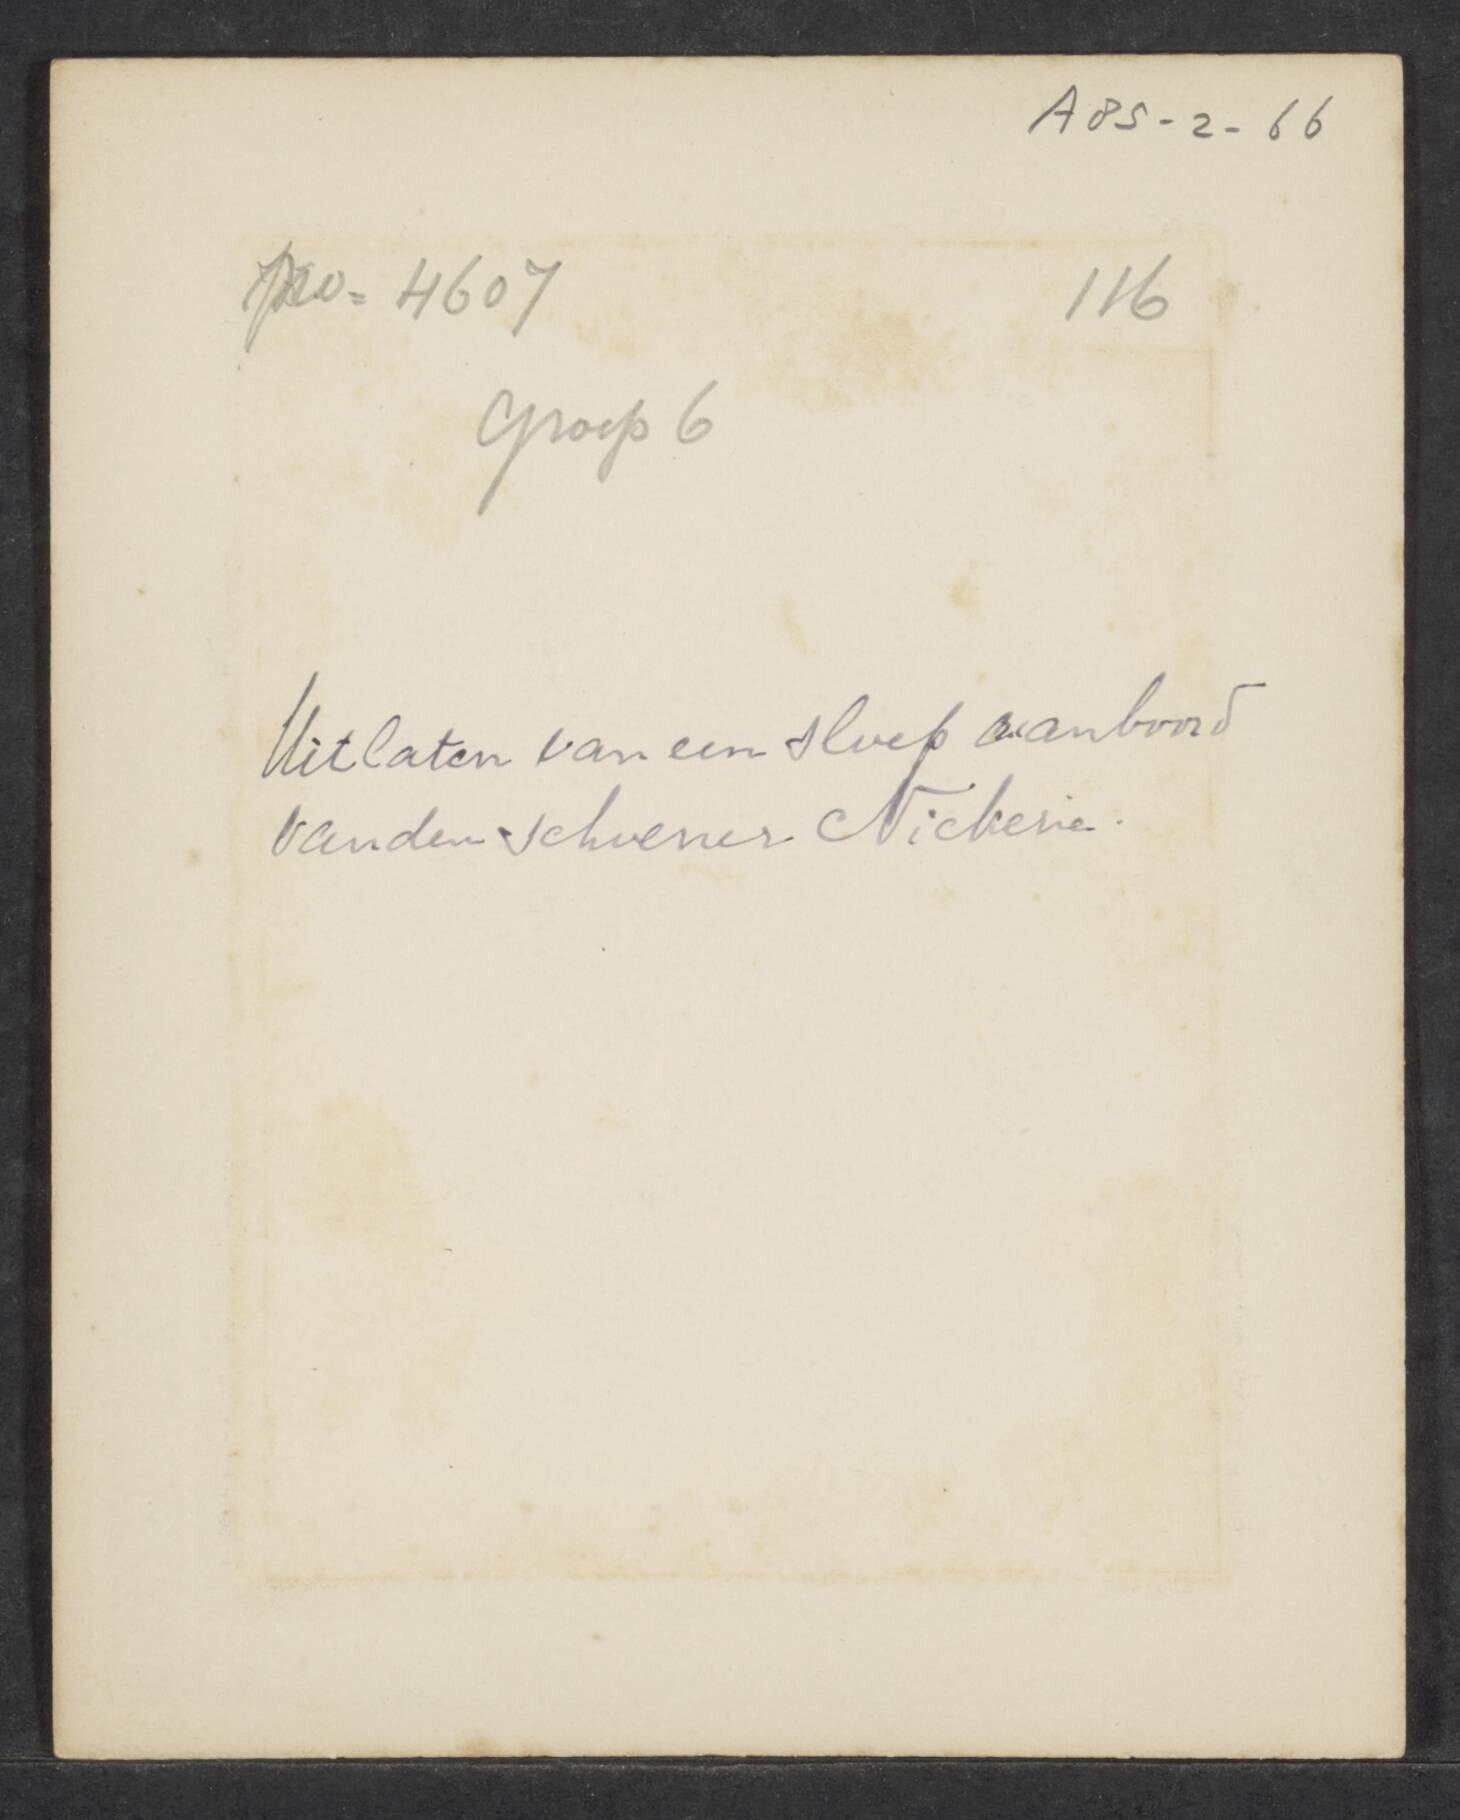 A85-2-66
no= 4607 116
Groep 6
Uitlaten van een sloep aanboord
van den schoener Nickerie.